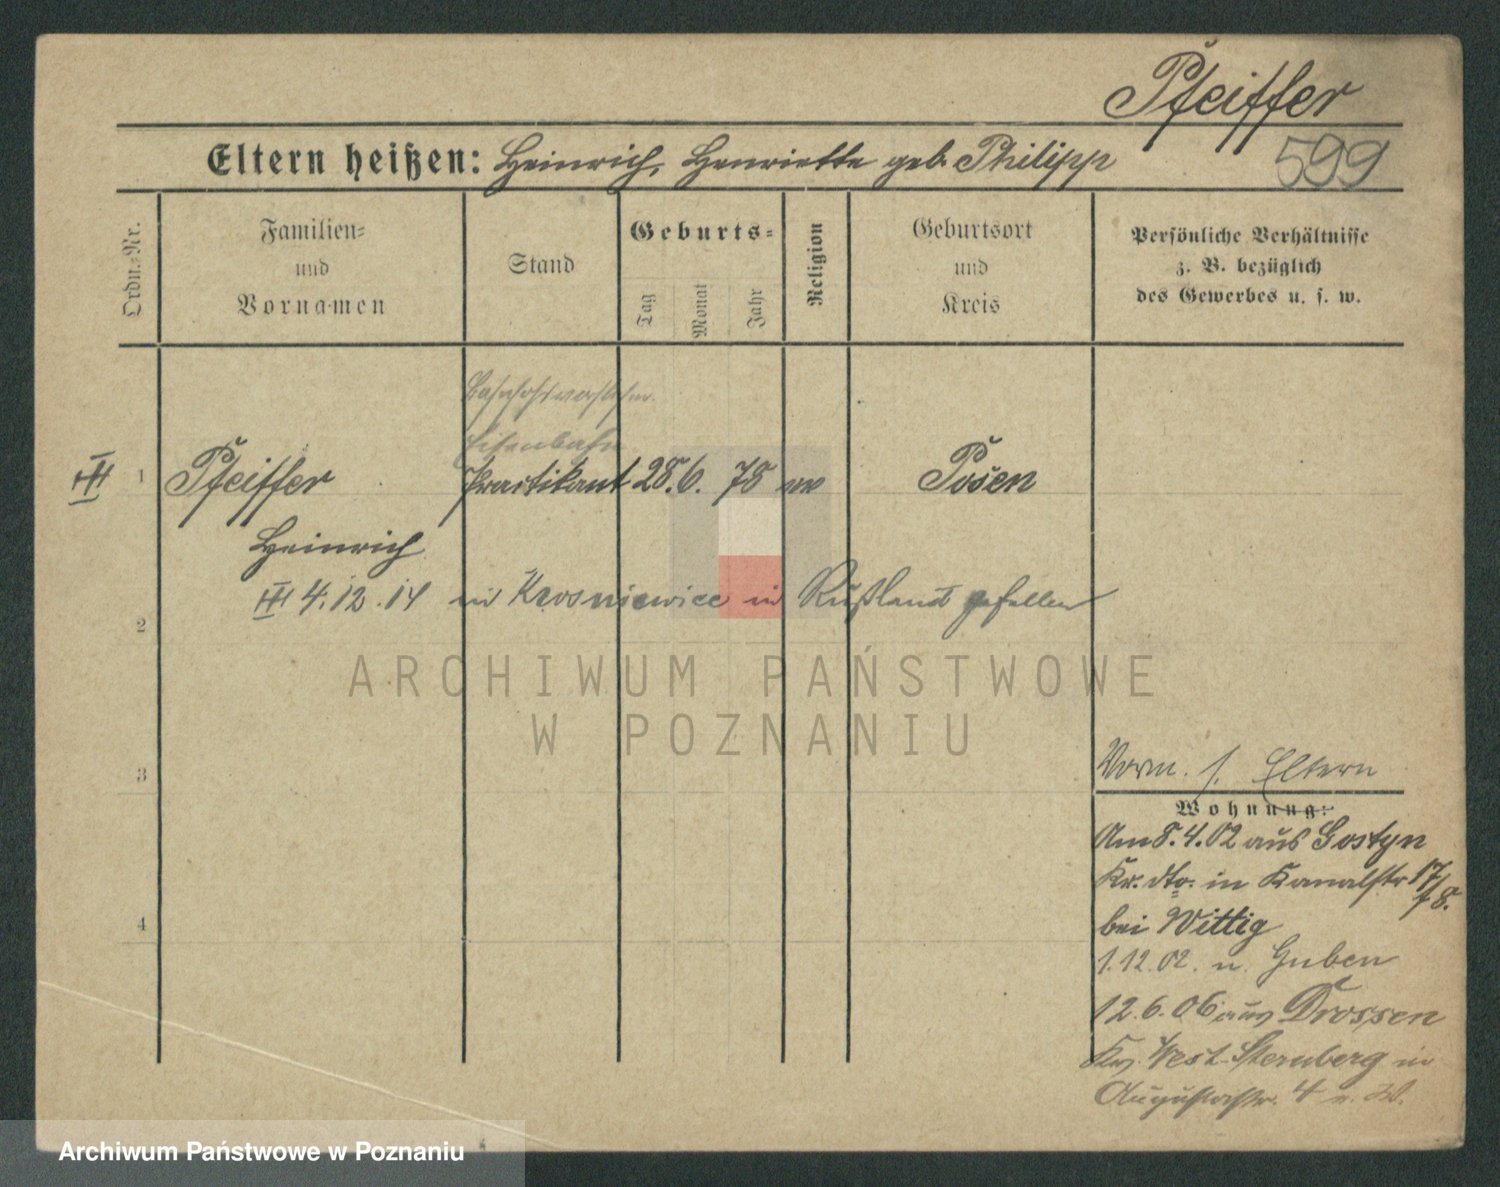 Pfeiffer
Eltern heißen: Heinrich, Henriette geb. Philipp
599
Ordn.-Nr.
Familien-
und
Vornamen
Stand
Geburts-
Tag
Monat
Jahr
Religion
Geburtsort
und
Kreis
Persönliche Verhältnisse
z. B. bezüglich
des Gewerbes u. s. w.
Bahnhofsvorsteher
Eisenbahn
III 1 Pfeiffer Praktikant 28. 6. 78 Posen
Heinrich
III 4.12.14 in Krosniewice in Rußland gefallen
2
ARCHIWUM PAŃSTWOWE
W POZNANIU
3
Vorm. s. Eltern
Wohnung:
Am 8.4.02 aus Gostyn
Kr. dto. in Kanalstr 17/18.
bei Wittig
4
1.12.02. n. Guben
12.6.06 aus Drossen
Kr. West-Sternberg in
Augustastr. 4
Archiwum Państwowe w Poznaniu